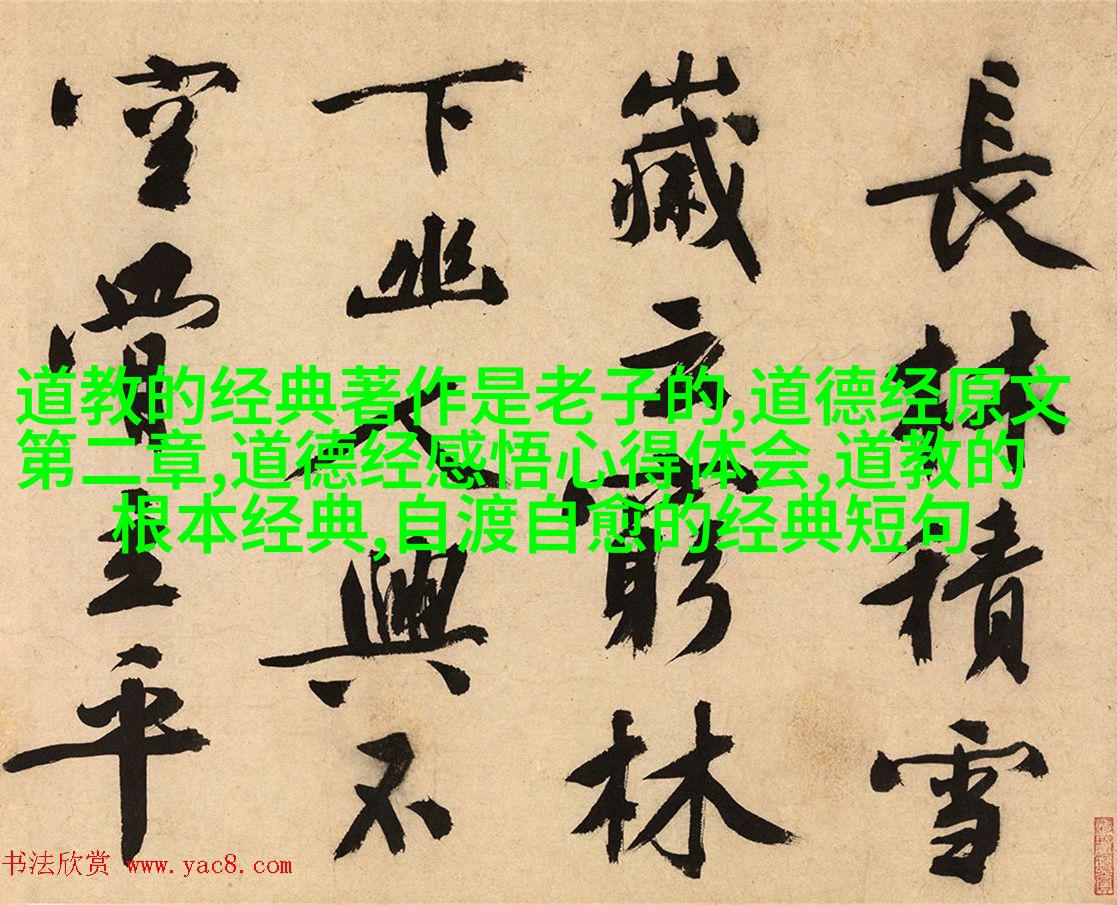 長林積雪
嵗云窮林
下幽人興不
空平
道教的经典著作是老子的,道德经原文
第二章,道德经感悟心得体会,道教的
根本经典,自渡自愈的经典短句
书法欣赏 www.yac8.com